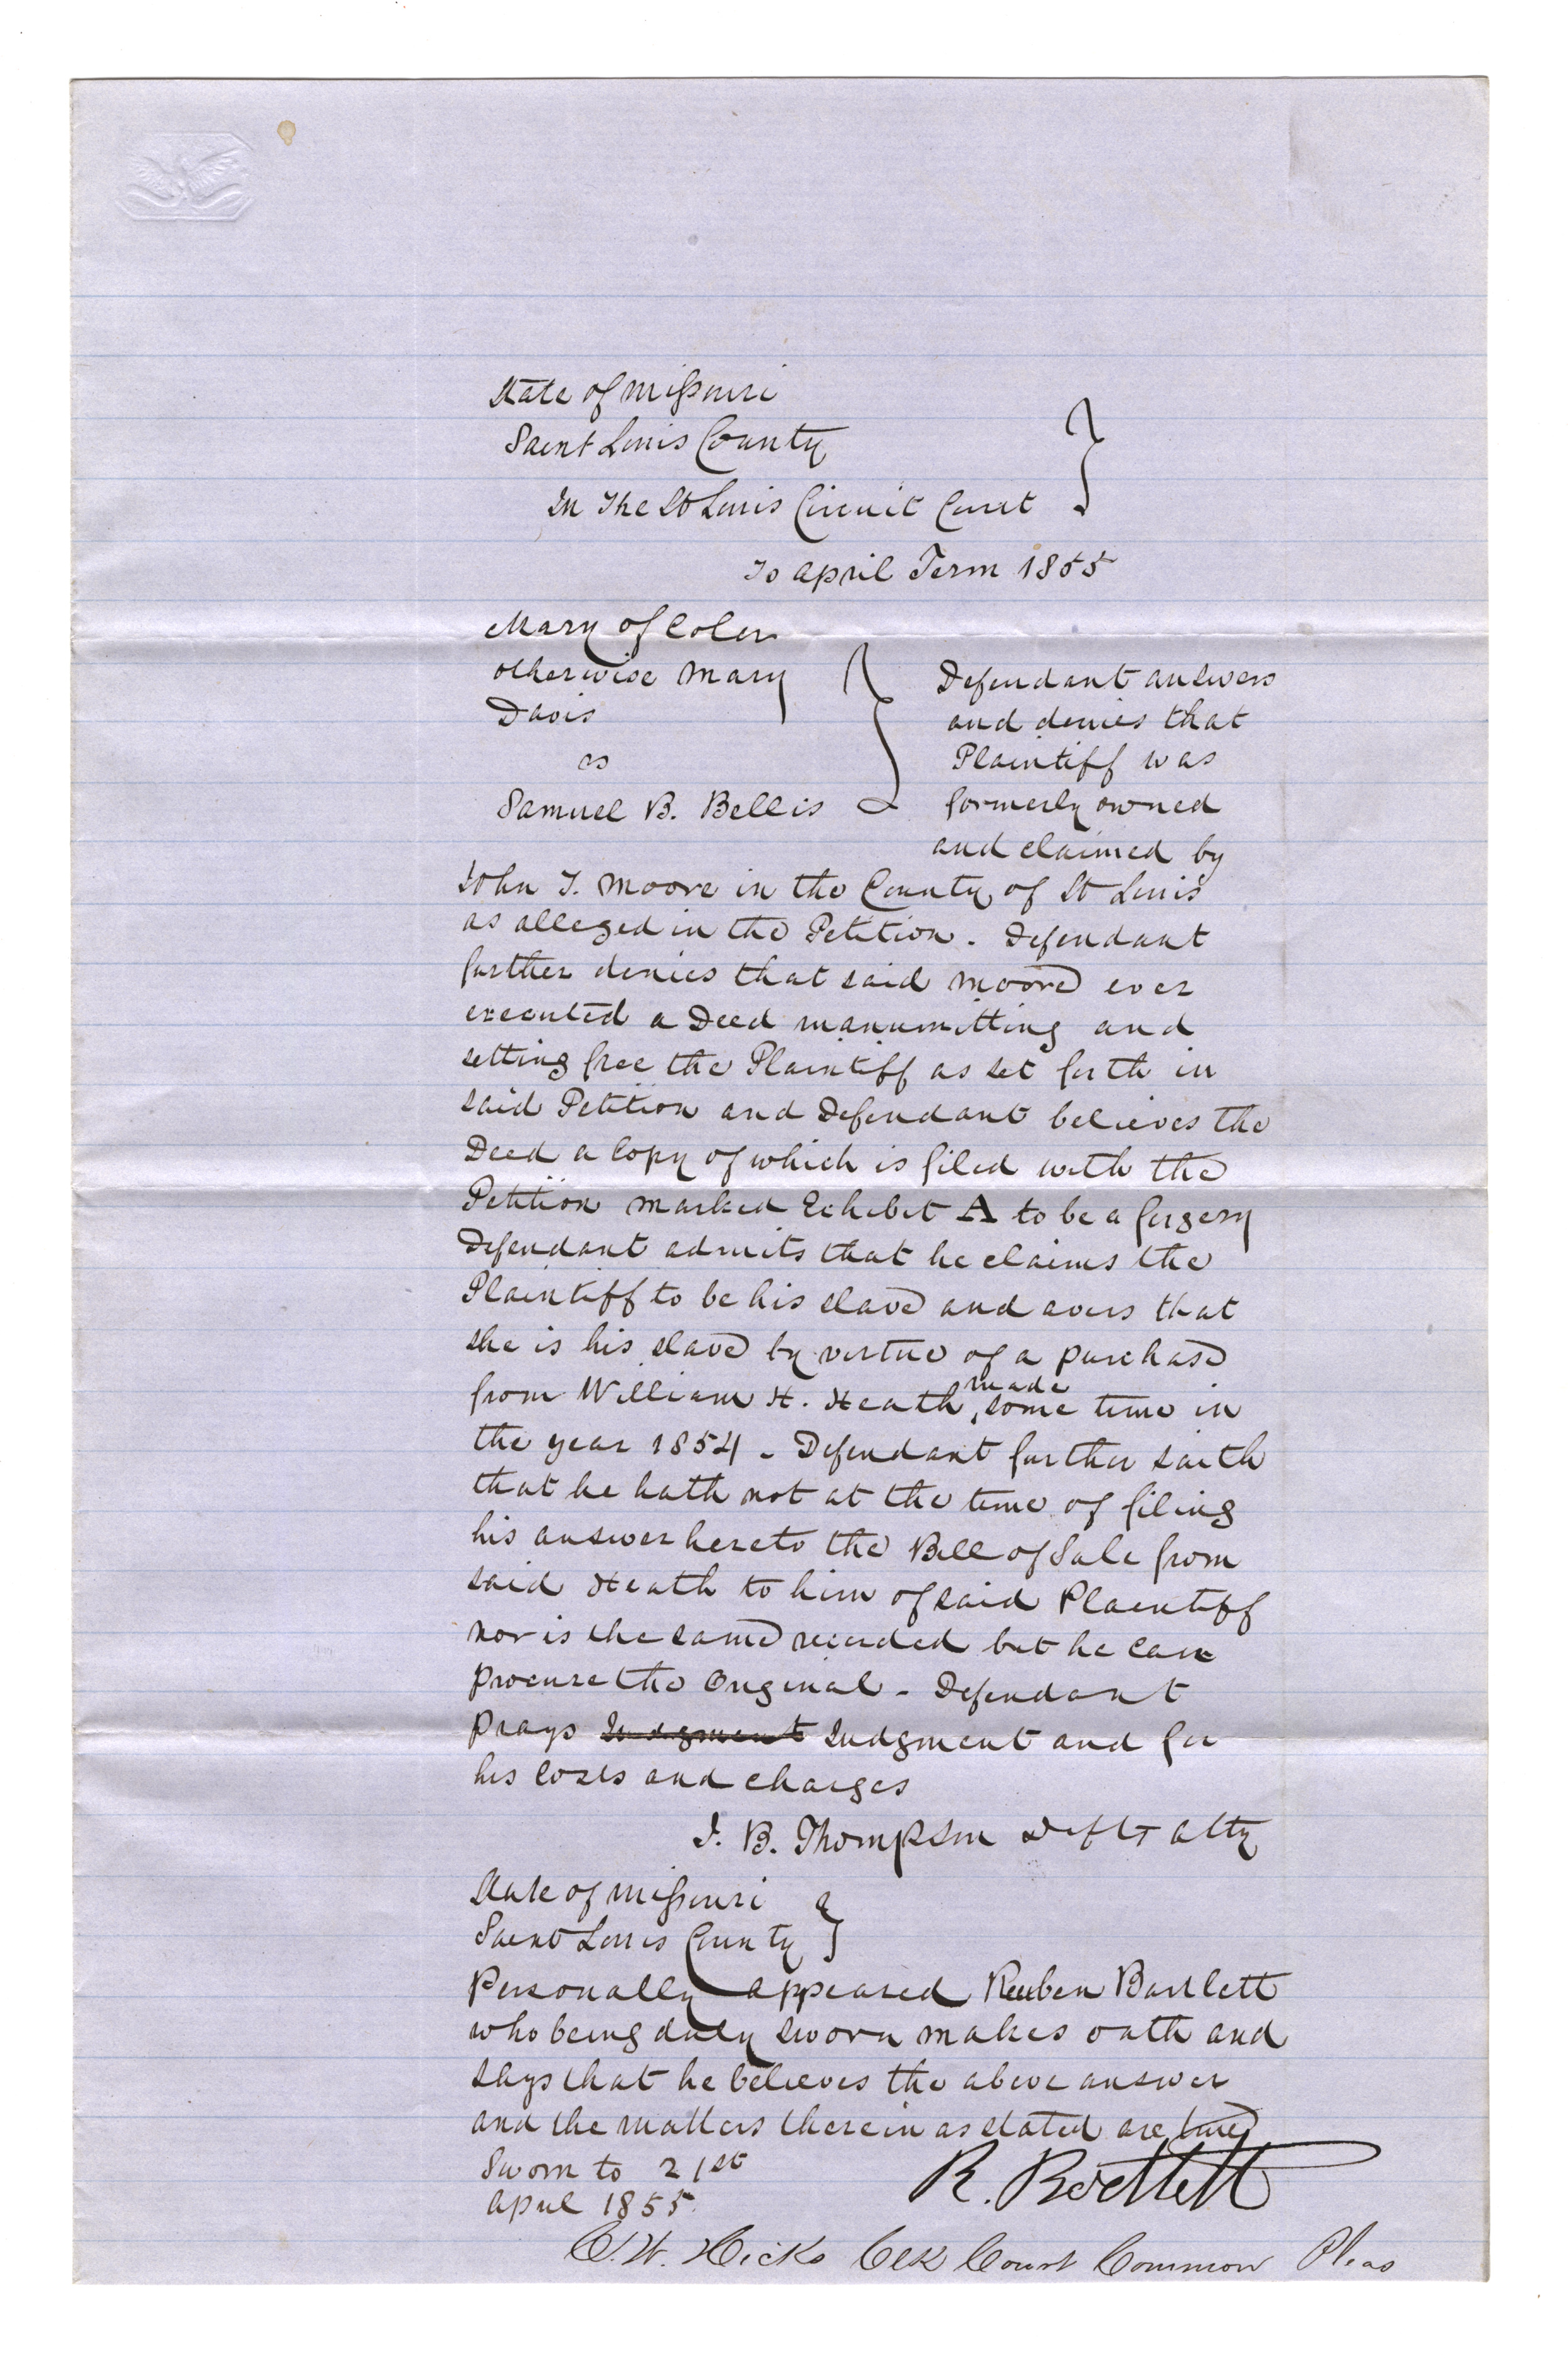 State of Missouri
Saint Louis County
In The St Louis Circuit Court
To April Term 1855
Mary of Color
otherwise Mary
Davis
vs
Samuel B. Bellis
Defendant answers
and denies that
Plaintiff was
formerly owned
and claimed by
John T. Moore in the County of St Louis
as alleged in the Petition. Defendant
further denies that said Moore ever
executed a Deed manumitting and
setting free the Plaintiff as set forth in
said Petition and Defendant believes the
Deed a Copy of which is filed with the
Petition marked Exhibit A to be a forgery
Defendant admits that he claims the
Plaintiff to be his slave and avers that
she is his slave by virtue of a purchase
from William H. Heath, made some time in
the year 1854 - Defendant further saith
that he hath not at the time of filing
his answer hereto the Bill of Sale from
said Heath to him of said Plaintiff
nor is the same recorded but he can
procure the Original - Defendant
prays Judgment Judgment and for
his Costs and charges
J. B. Thompson Deft atty
State of Missouri
Saint Louis County
Personally appeared Reuben Bartlett
who being duly sworn makes oath and
says that he believes the above answer
and the matters therein as stated are true
Sworn to 21st
April 1855
R. Bartlett
C. W. Hicks Clk Court Common Pleas